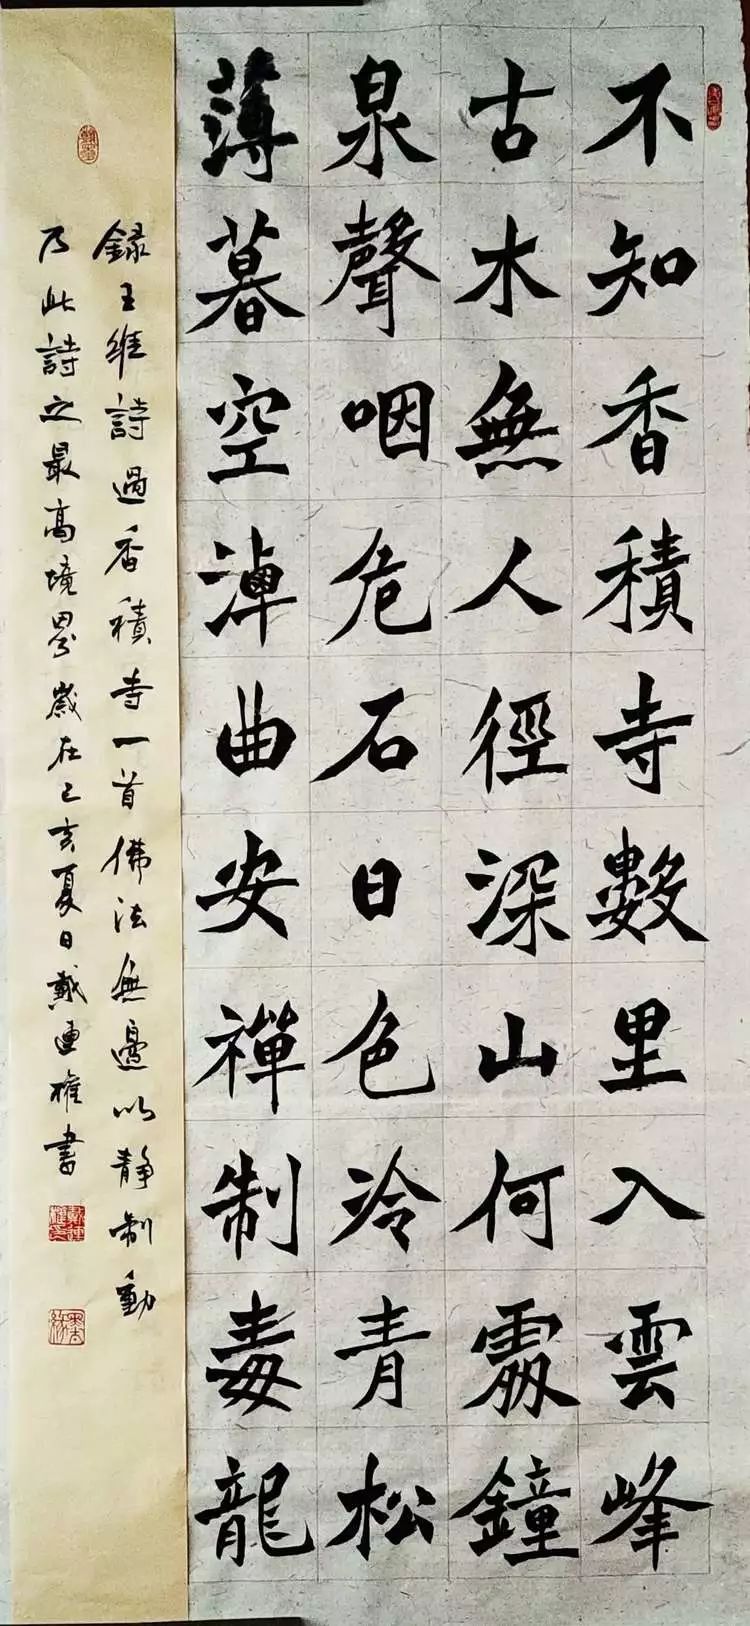 不知香積寺數里入雲峰
古木無人徑深山何處鐘
泉聲咽危石日色冷青松
薄暮空潭曲安禪制毒龍
録王維詩過香積寺一首佛法無邊以靜制動
乃此詩之最高境界歲在己亥夏日戴連權書